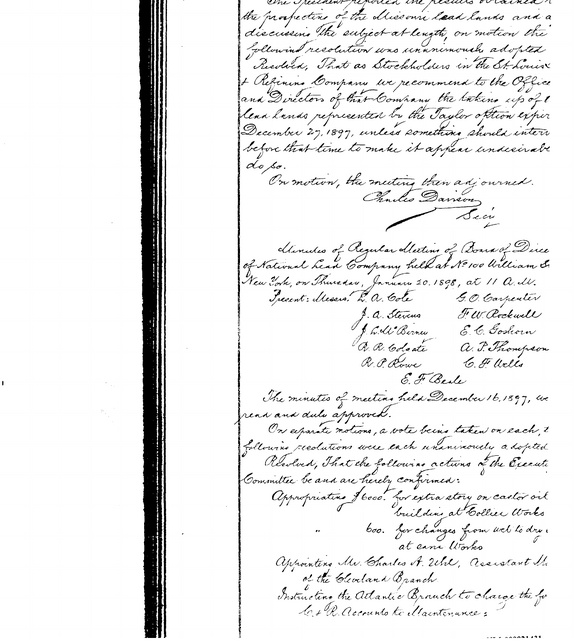 The President reported the results obtained
the prospecting of the Missouri lead lands and a
discussing the subject at length, on motion the
following resolution was unanimously adopted
Resolved, That as Stockholders in the St Louis
& Refining Company we recommend to the Office
and Directors of that Company the taking up of t
lead lands represented by the Taylor option expir
December 27, 1897, unless something should interv
before that time to make it appear undesirable
do so.
On motion, the meeting then adjourned.
Charles Davison
Sec'y
Minutes of Regular Meeting of Board of Direc
of National Lead Company held at No 100 William S
New York, on Thursday, January 20, 1898, at 11 A.M.
Present: Messrs. L. A. Cole G. O. Carpenter
J. A. Stevens F W Rockwell
J L McBirney E. C. Goshorn
R. R. Colgate A. P. Thompson
R. P. Rowe C. F Wells
E. F Beale
The minutes of meeting held December 16, 1897, we
read and duly approved.
On separate motions, a vote being taken on each, t
following resolutions were each unanimously adopted
Resolved, That the following actions of the Executi
Committee be and are hereby confirmed:
Appropriating $6000. for extra story on castor oil
building at Collier Works
" 600. for changes from wet to dry
at same Works
Appointing Mr. Charles A. Assistant M
of the Cleveland Branch
Instructing the Atlantic Branch to charge the fo
C. & R. Accounts to Maintenance: